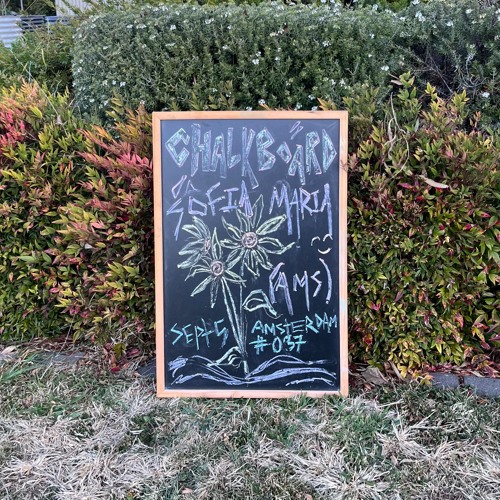 CHALKBOARD
SOFIA MARIA
(AMS)
SEPT 5 AMSTERDAM
#037